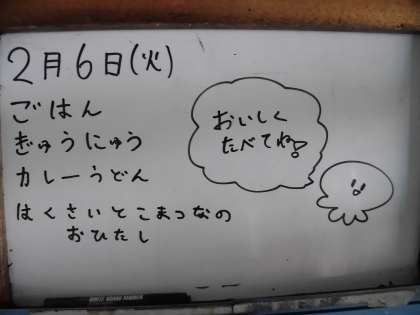 2月6日(火)
ごはん
ぎゅうにゅう
カレーうどん
はくさいとこまつなの
おひたし
おいしく
たべてね!